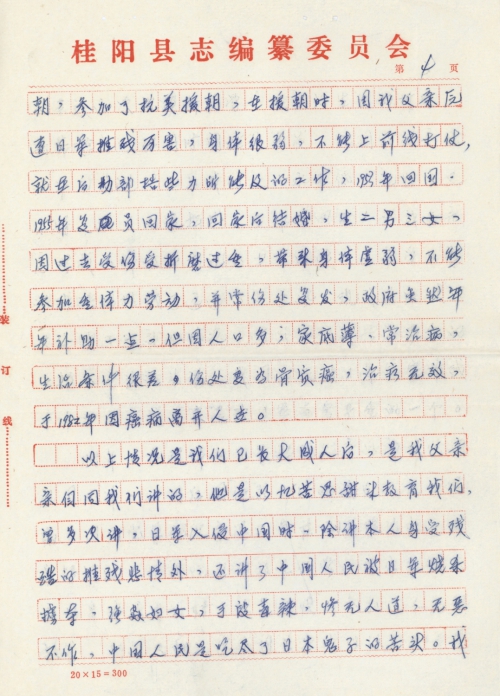 桂阳县志编纂委员会
第 4 页
朝，参加了抗美援朝，在援朝时，因我父亲无
道日军摧残历害，身体很弱，不能上前线打仗，
就在后勤部搞些力所能及的工作，195年回国．
1955年复员回家，回家后结婚，生二男三女，
因过去受伤受折磨过重，带来身体虚弱，不能
参加重体力劳动，并常伤处复发，政府虽然年
年补助一点．但因人口多；家底薄、常治病，
生活条件很差。伤处变为骨质癌，治疗无效，
于1982年因癌病离开人世。
以上情况是我们已长大成人后，是我父亲
亲自因我们讲的，他是以忆苦思甜来教育我们，
曾多次讲，日军入侵中国时．除讲本人身受残
酷的摧残悲情外，还讲了中国人民被日军烧杀
掳夺．强奸妇女，手段毒辣，惨无人道，无恶
不作，中国人民是吃尽了日本鬼子的苦头。我
装
订
线
20×15=300